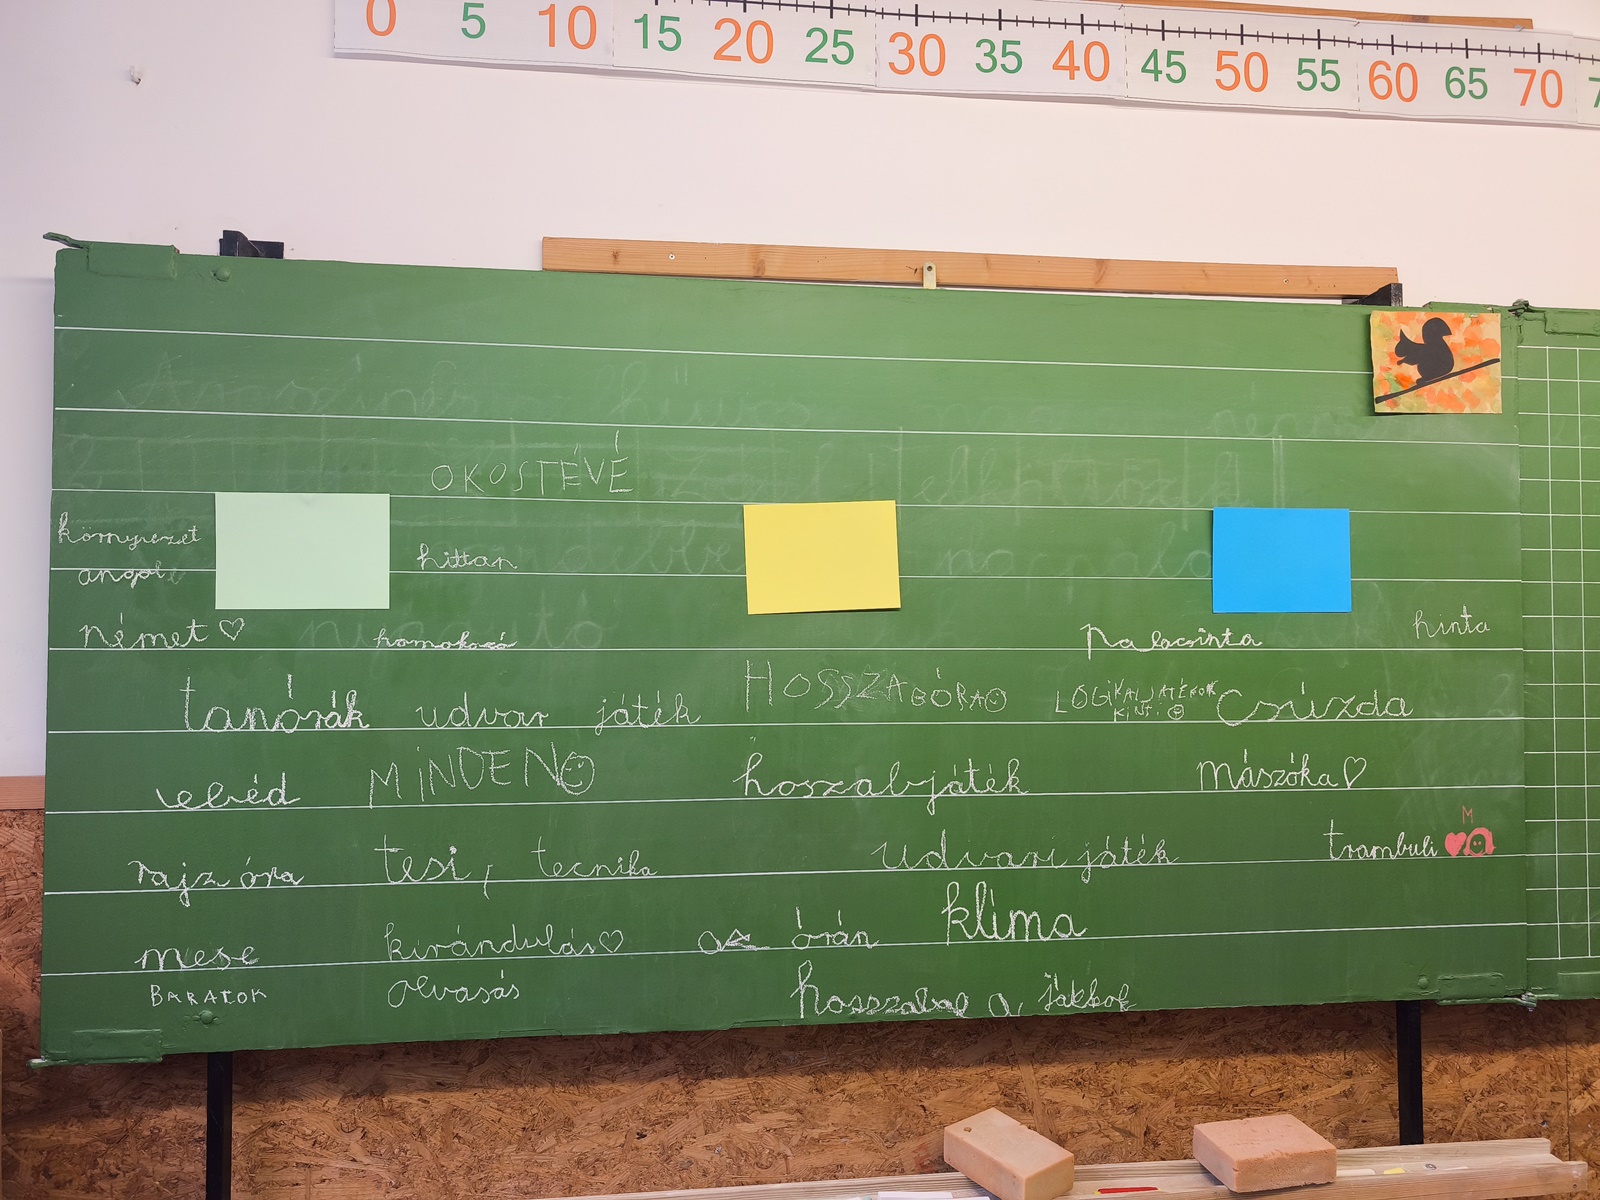 0 5 10 15 20 25 30 35 40 45 50 55 60 65 70
OKOSTÉVÉ
környezet
angol
hittan
német ♡
homokozó
palacsinta
hinta
tanórák udvar játék
HOSSZABÓRA
LOGIKAI JÁTÉKOK
KINT!
Csúzda
ebéd
MINDEN
hoszabjáték
Mászóka ♡
M
rajz óra
tesi, tecnika
udvari játék
trambuli
mese
kirándulás ♡
az órán
klíma
BARATOK
olvasás
hosszabal a jákkok